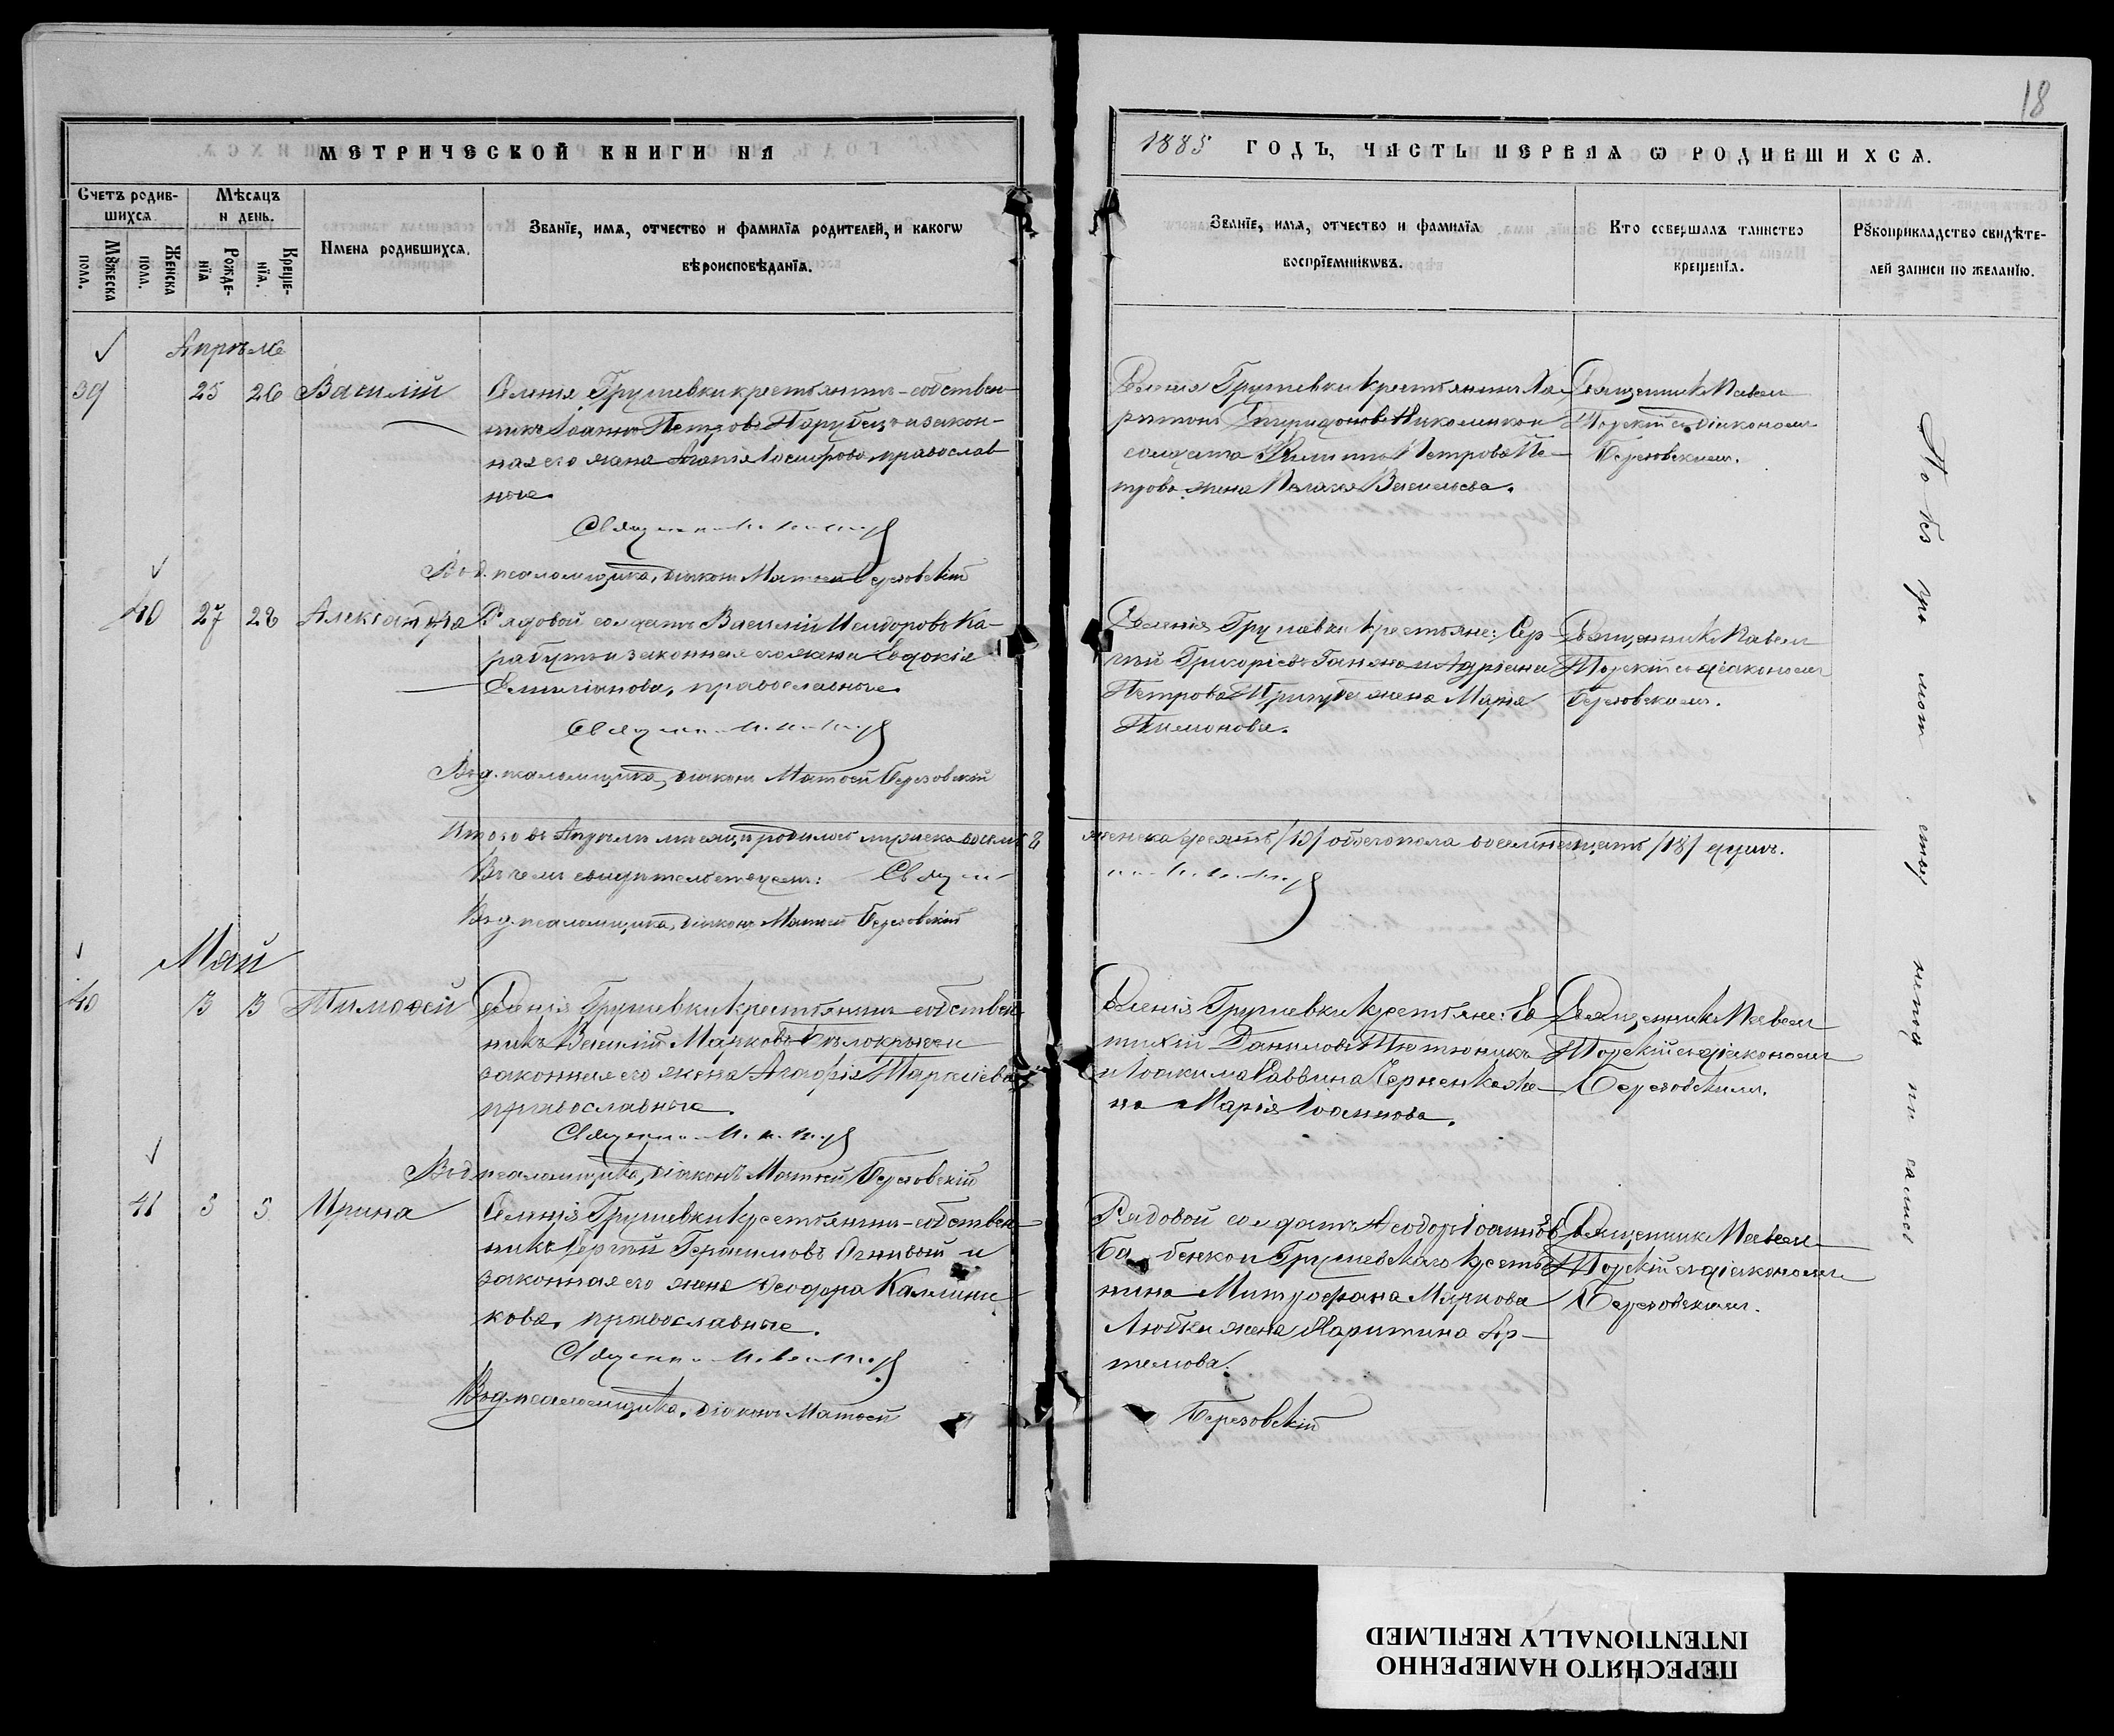 18
МЕТРИЧЕСКОЙ КНИГИ НА
1885 ГОДЪ, ЧАСТЬ ПЕРВАЯ Ѡ РОДИВШИХСѦ.
Счетъ родив-
шихсѧ
Мѣсѧцъ
и день.
Мꙋжеска
пола.
Женска
пола.
Рожде-
нїѧ
Креще-
нїѧ.
Имена родившихсѧ.
Званїе, имѧ, отчество и фамилїѧ родителей, и какогѡ
вѣроисповѣданїѧ.
Званїе, имѧ, отчество и фамилїѧ
воспрїемникѡвъ.
Кто совершалъ таинство
крещенїѧ.
Рꙋкоприкладство свидѣте-
лей записи по желанїю.
Апрѣле
39 25 26 Василій
Селенія Грушевки крестьянинъ-собствен-
никъ Іоаннъ Петровъ Парубецъ и закон-
ная его жена Агатія Іосифова православ
ные.
Вод. псаломщика, діаконъ Матѳей Березовскій
Селенія Грушевки крестьянинъ Ха-
ритонъ Спиридоновъ Николенко и
солдата Филиппа Петрова Пе-
трова жена Пелагея Васильева.
Священникъ Павелъ
Торскій съ діакономъ
Березовскимъ.
40 27 28 Александра
Рядовой солдатъ Василій Исидоровъ Ка-
рабутъ и законная его жена Евдокія
Емиліанова, православные.
Вод. псаломщика, діаконъ Матѳей Березовскій
Селенія Грушевки крестьяне: Сер-
гій Григоріевъ и Адріана
Петрова жена Марія
Тимонова.
Священникъ Павелъ
Торскій съ діакономъ
Березовскимъ.
Итого въ Апрѣлѣ мѣсяцѣ родилось мужеска восемь 8
женска десять /10/ обоего пола восемнадцать /18/ душъ.
Въ чемъ свидѣтельствуемъ:
Вод. псаломщика, діаконъ Матѳей Березовскій
Май
40 3 3 Тимоѳей
Селенія Грушевки крестьянинъ собствен
никъ Василій Марковъ Бѣлоконь и
законная его жена Агафія Тарасіева
православные.
Вод. псаломщика, діаконъ Матѳей Березовскій
Селенія Грушевки крестьяне: Ев
тихій Даниловъ Тютюникъ
и Іоакима Саввина Черненка же-
на Марія Іоаннова.
Священникъ Павелъ
Торскій съ діакономъ
Березовскимъ.
41 5 5 Ирина
Селенія Грушевки крестьянинъ-собствен
никъ Сергій Герасимовъ Огнивый и
законная его жена Ѳеодора Каллини
кова, православные.
Вод. псаломщика, діаконъ Матѳей
Березовскій
Рядовой солдатъ Ѳеодоръ Іоанновъ
и Грушевскаго кресть
нина Митрофана Маркова
Любки жена Харитина Ар-
темова.
Священникъ Павелъ
Торскій съ діакономъ
Березовскимъ.
ПЕРЕСНЯТО НАМЕРЕННО
INTENTIONALLY REFILMED